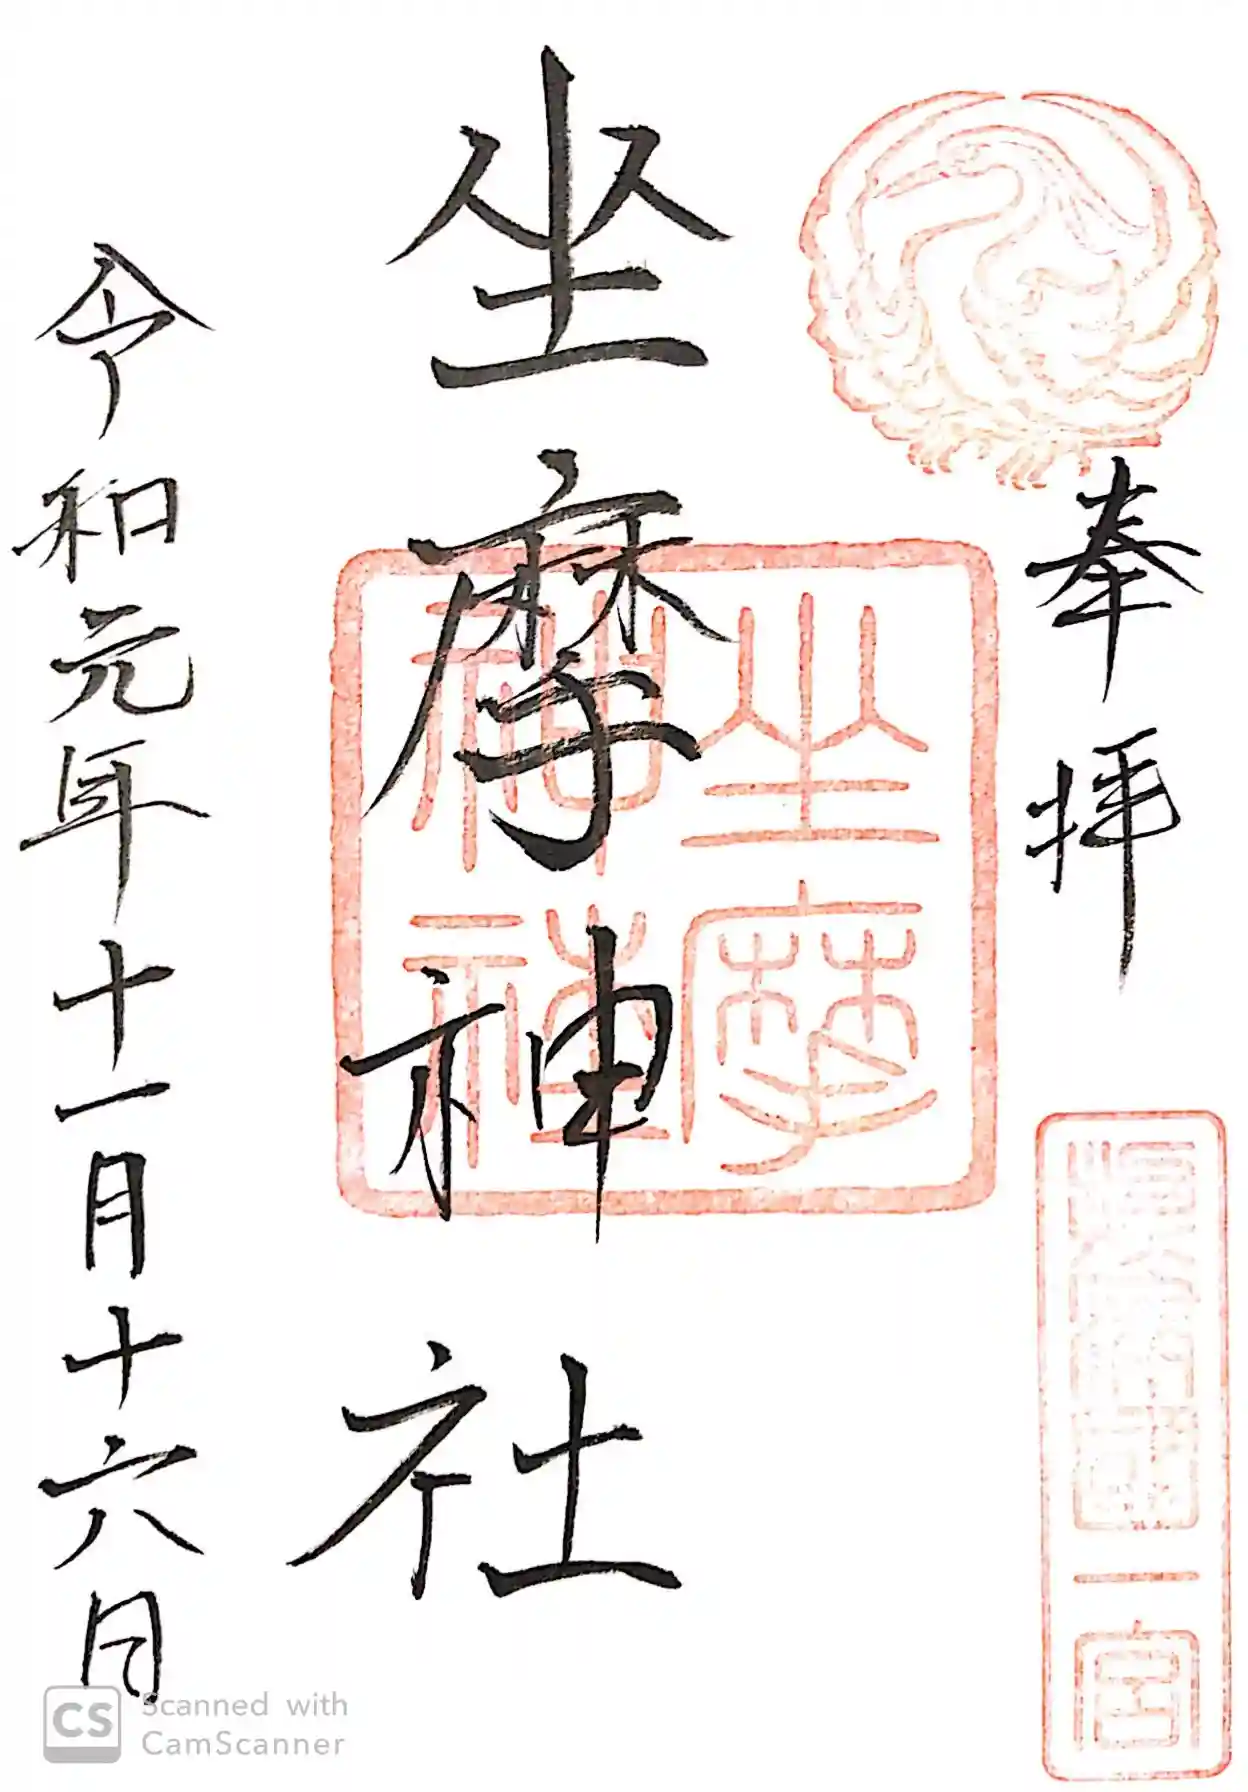 奉拝
摂津国一宮
坐摩神社
坐摩
神社
令和元年十一月十六日
CS Scanned with
CamScanner